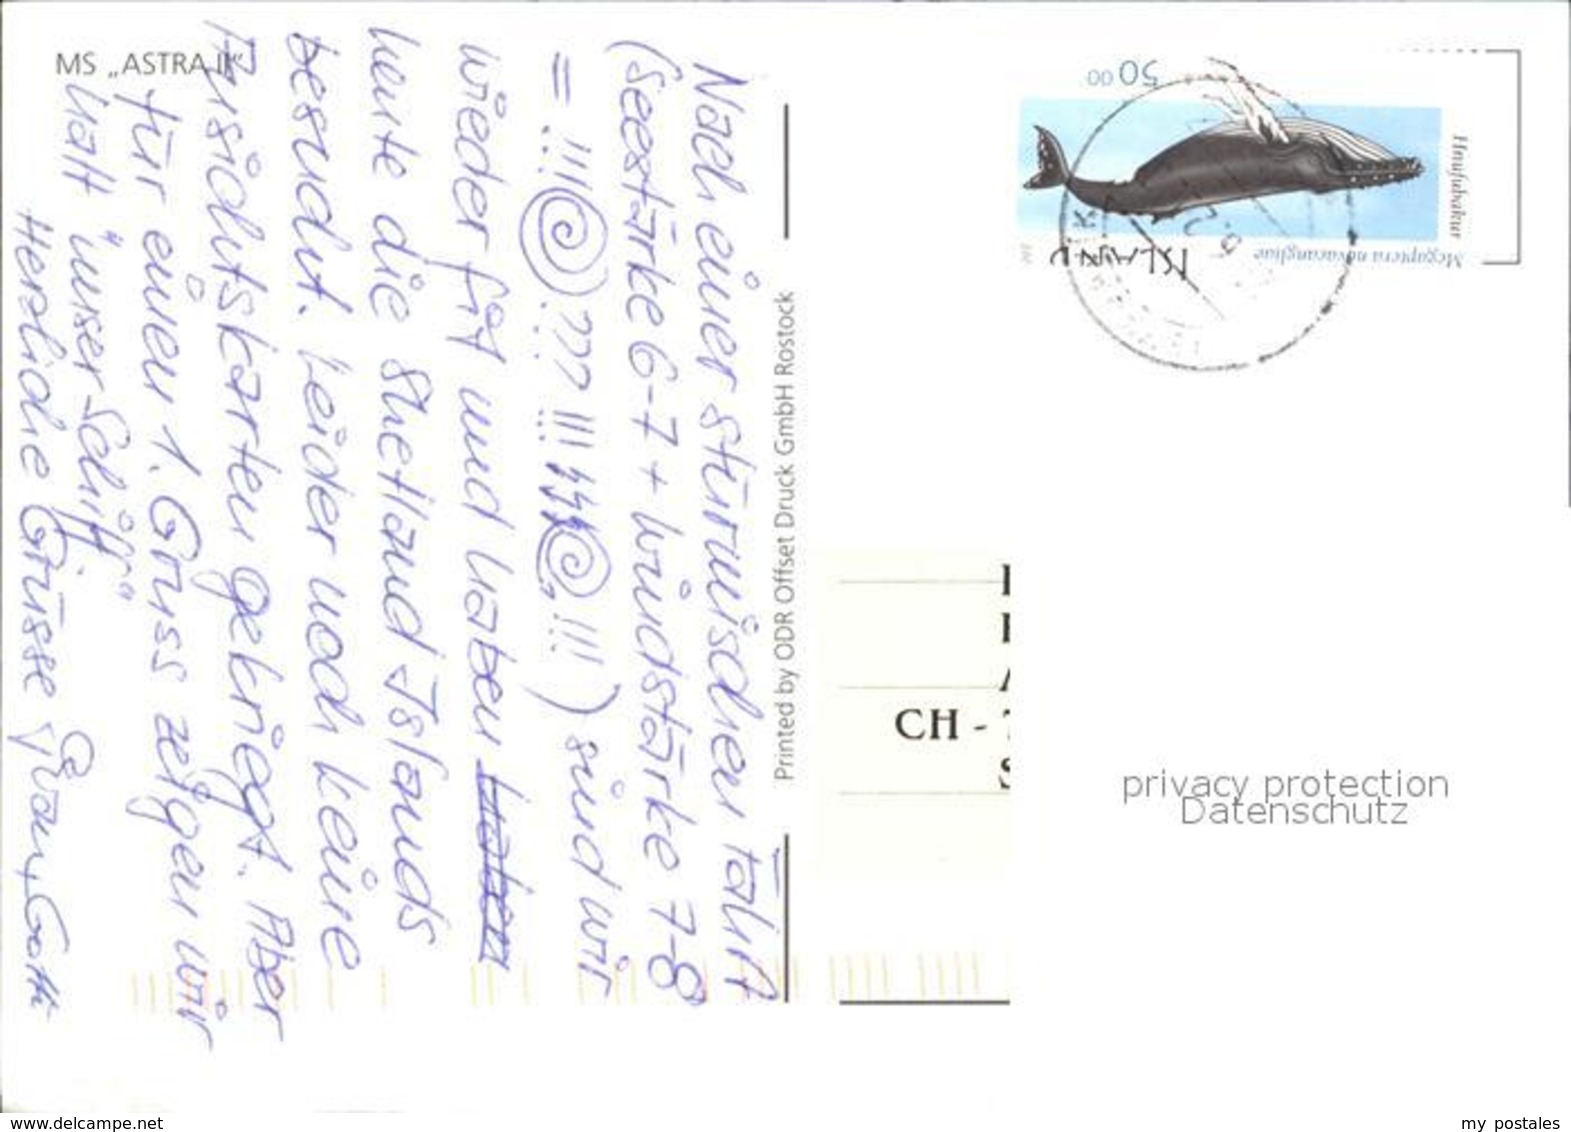 MS „ASTRA II“
Nach einer stürmischen Fahrt
(Seestärke 6-7 + Windstärke 7-8
= !!! ??? !!! !!!) sind wir
wieder fit und haben
heute die Shetland Islands
besucht. Leider noch keine
Ansichtskarten gekriegt. Aber
für einen 1. Gruss zeigen wir
halt "unser Schiff"
Herzliche Grüsse
Printed by ODR Offset Druck GmbH Rostock
50 00
ISLAND
Hnúfubakur
Megaptera novaeangliae
CH -
privacy protection
Datenschutz
www.delcampe.net
my postales